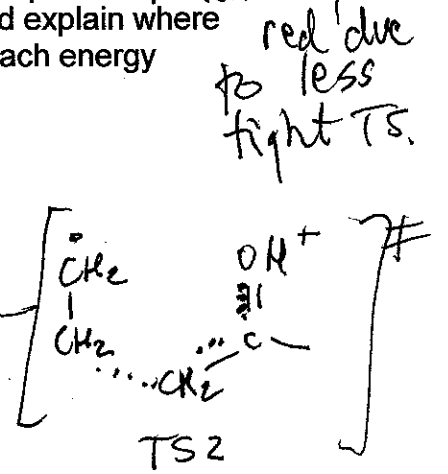 d explain where
ach energy
red due
to less
tight TS.
CH2
CH2
CH2
OH +
C
‡
TS2